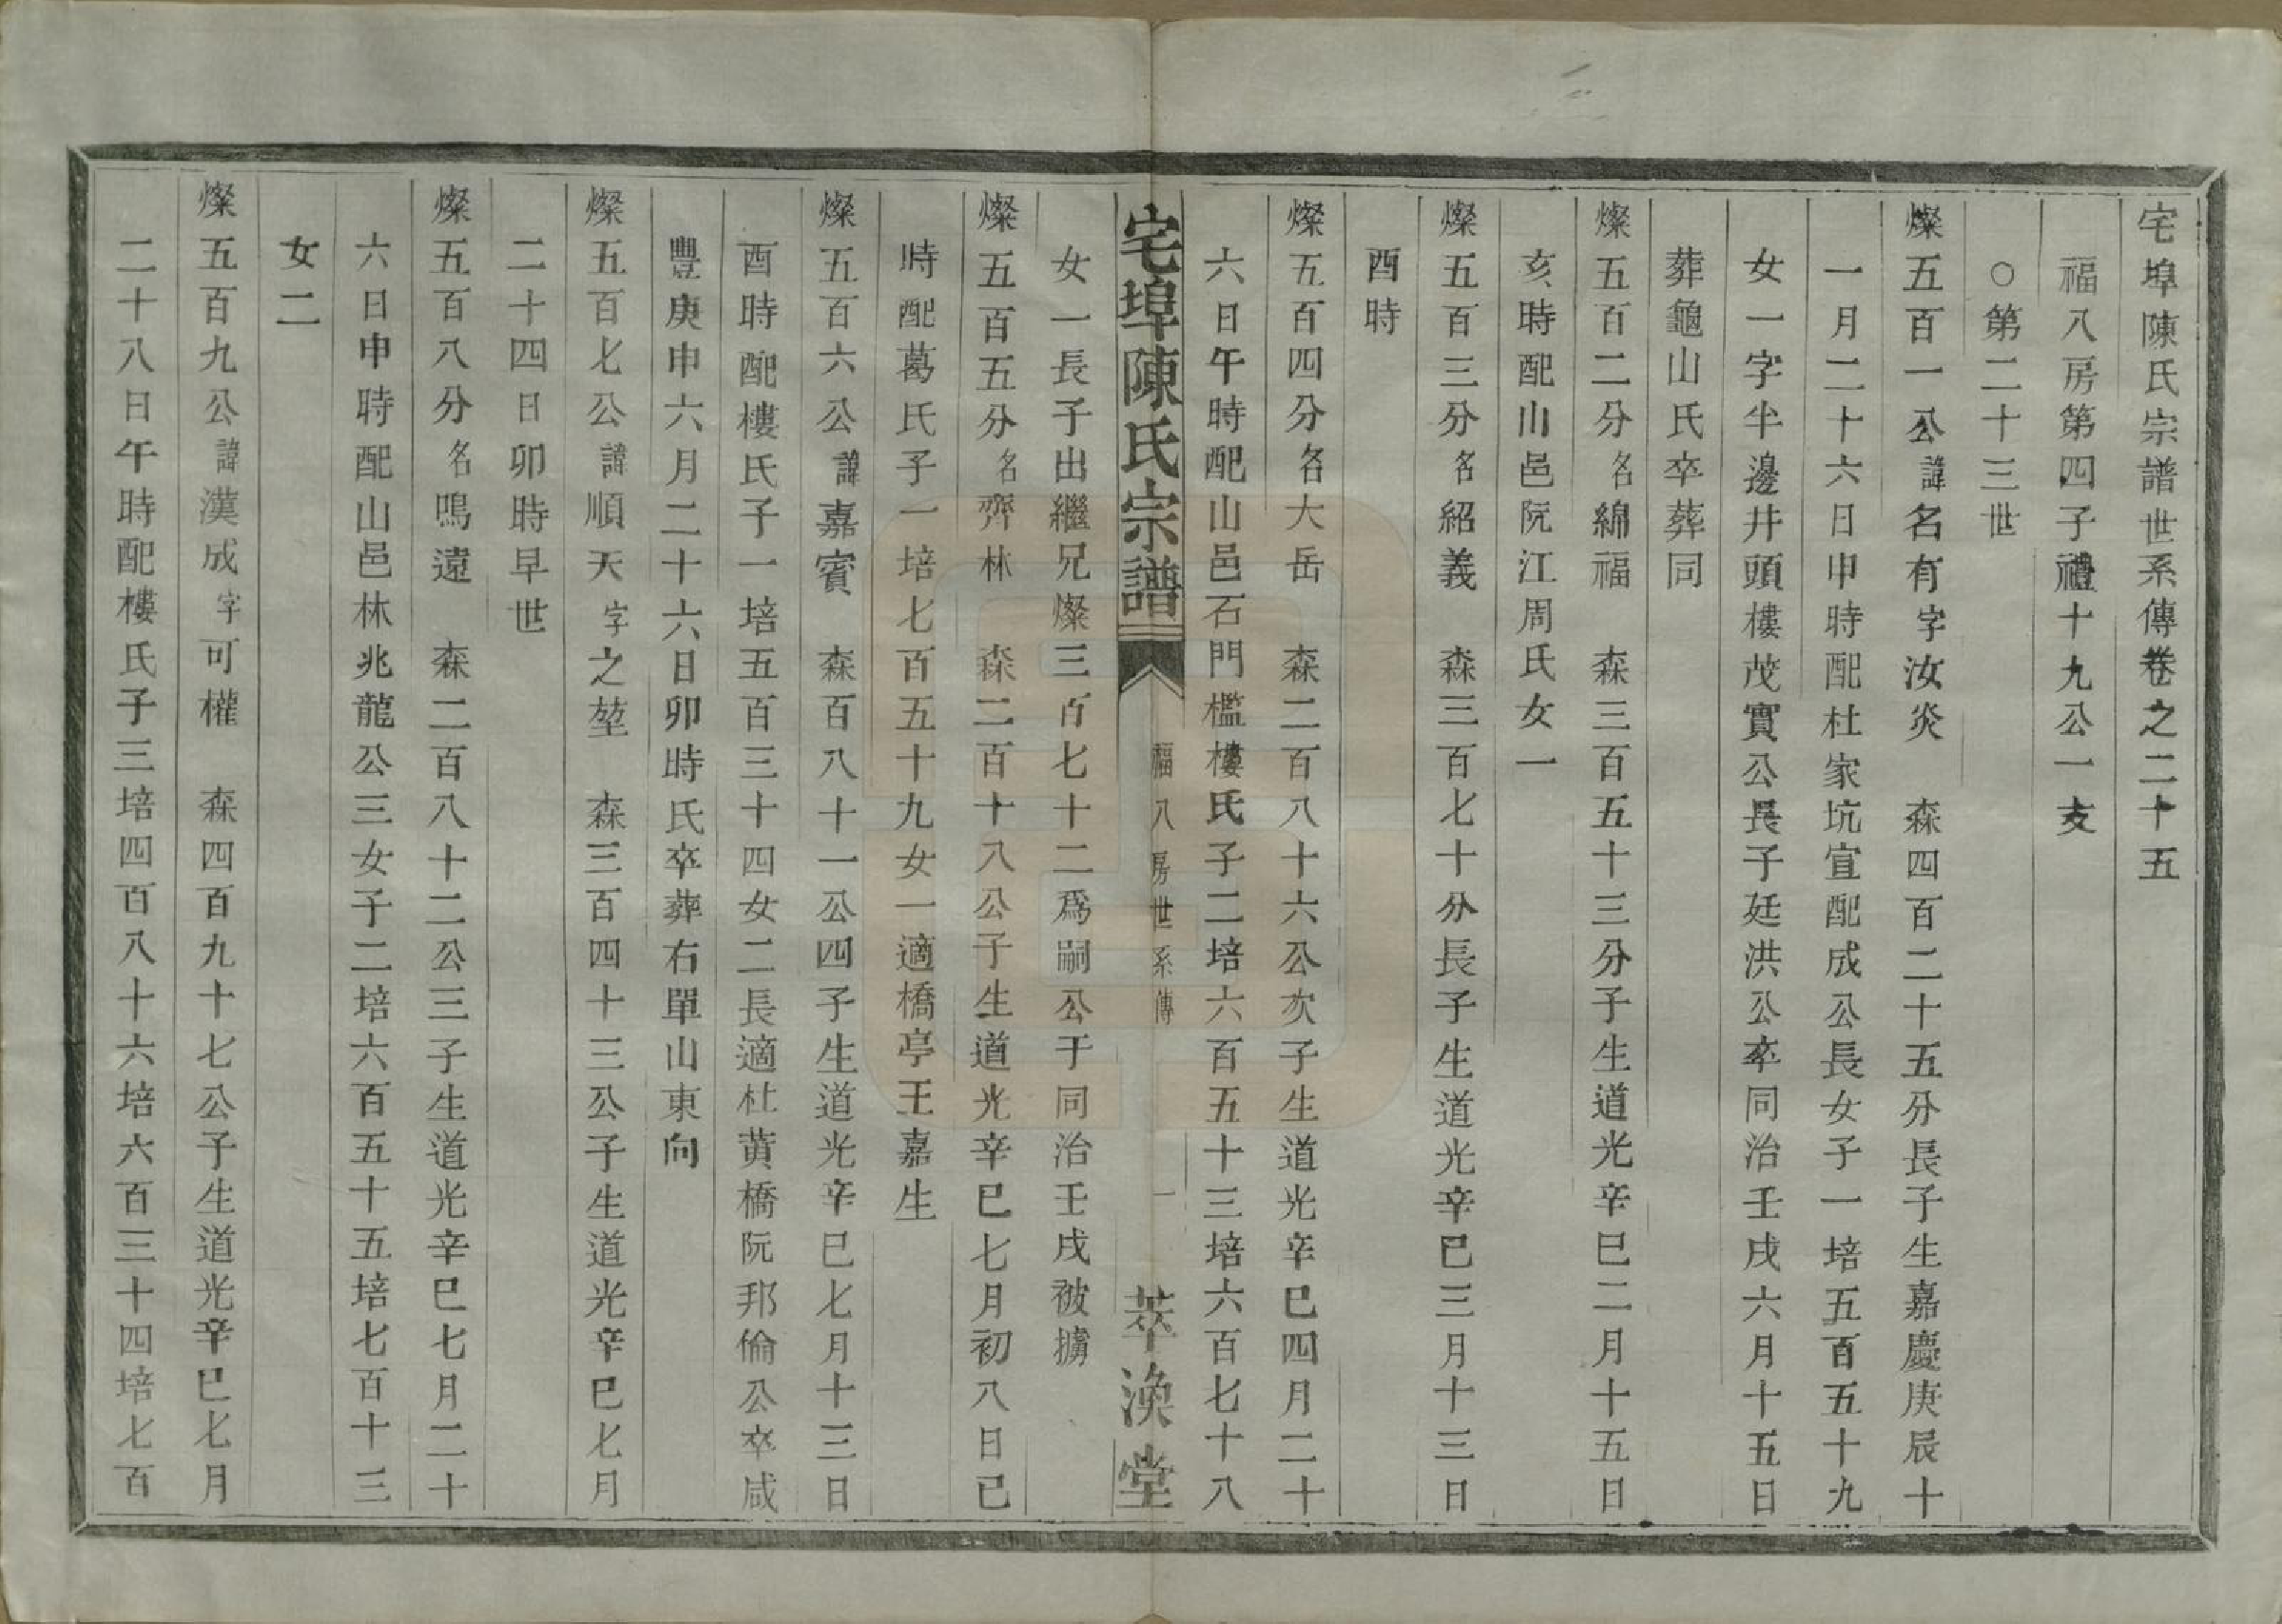 宅埠陳氏宗譜世系傳卷之二十五
福八房第四子禮十九公一支
○第二十三世
燦五百一公諱名有字汝炎　森四百二十五分長子生嘉慶庚辰十
一月二十六日申時配杜家坑宣配成公長女子一培五百五十九
女一字半邊井頭樓茂實公長子廷洪公卒同治壬戌六月十五日
葬龜山氏卒葬同
燦五百二分名綿福　森三百五十三分子生道光辛巳二月十五日
亥時配山邑阮江周氏女一
燦五百三分名紹義　森三百七十分長子生道光辛巳三月十三日
酉時
燦五百四分名大岳　森二百八十六公次子生道光辛巳四月二十
六日午時配山邑石門檻樓氏子二培六百五十三培六百七十八
宅埠陳氏宗譜　福八房世系傳　一　萃渙堂
女一長子出繼兄燦三百七十二爲嗣公于同治壬戌被擄
燦五百五分名齊林　森二百十八公子生道光辛巳七月初八日巳
時配葛氏子一培七百五十九女一適橋亭王嘉生
燦五百六公諱嘉賓　森百八十一公四子生道光辛巳七月十三日
酉時配樓氏子一培五百三十四女二長適杜黃橋阮邦倫公卒咸
豐庚申六月二十六日卯時氏卒葬右單山東向
燦五百七公諱順天字之堃　森三百四十三公子生道光辛巳七月
二十四日卯時早世
燦五百八分名鳴遠　森二百八十二公三子生道光辛巳七月二十
六日申時配山邑林兆龍公三女子二培六百五十五培七百十三
女二
燦五百九公諱漢成字可權　森四百九十七公子生道光辛巳七月
二十八日午時配樓氏子三培四百八十六培六百三十四培七百